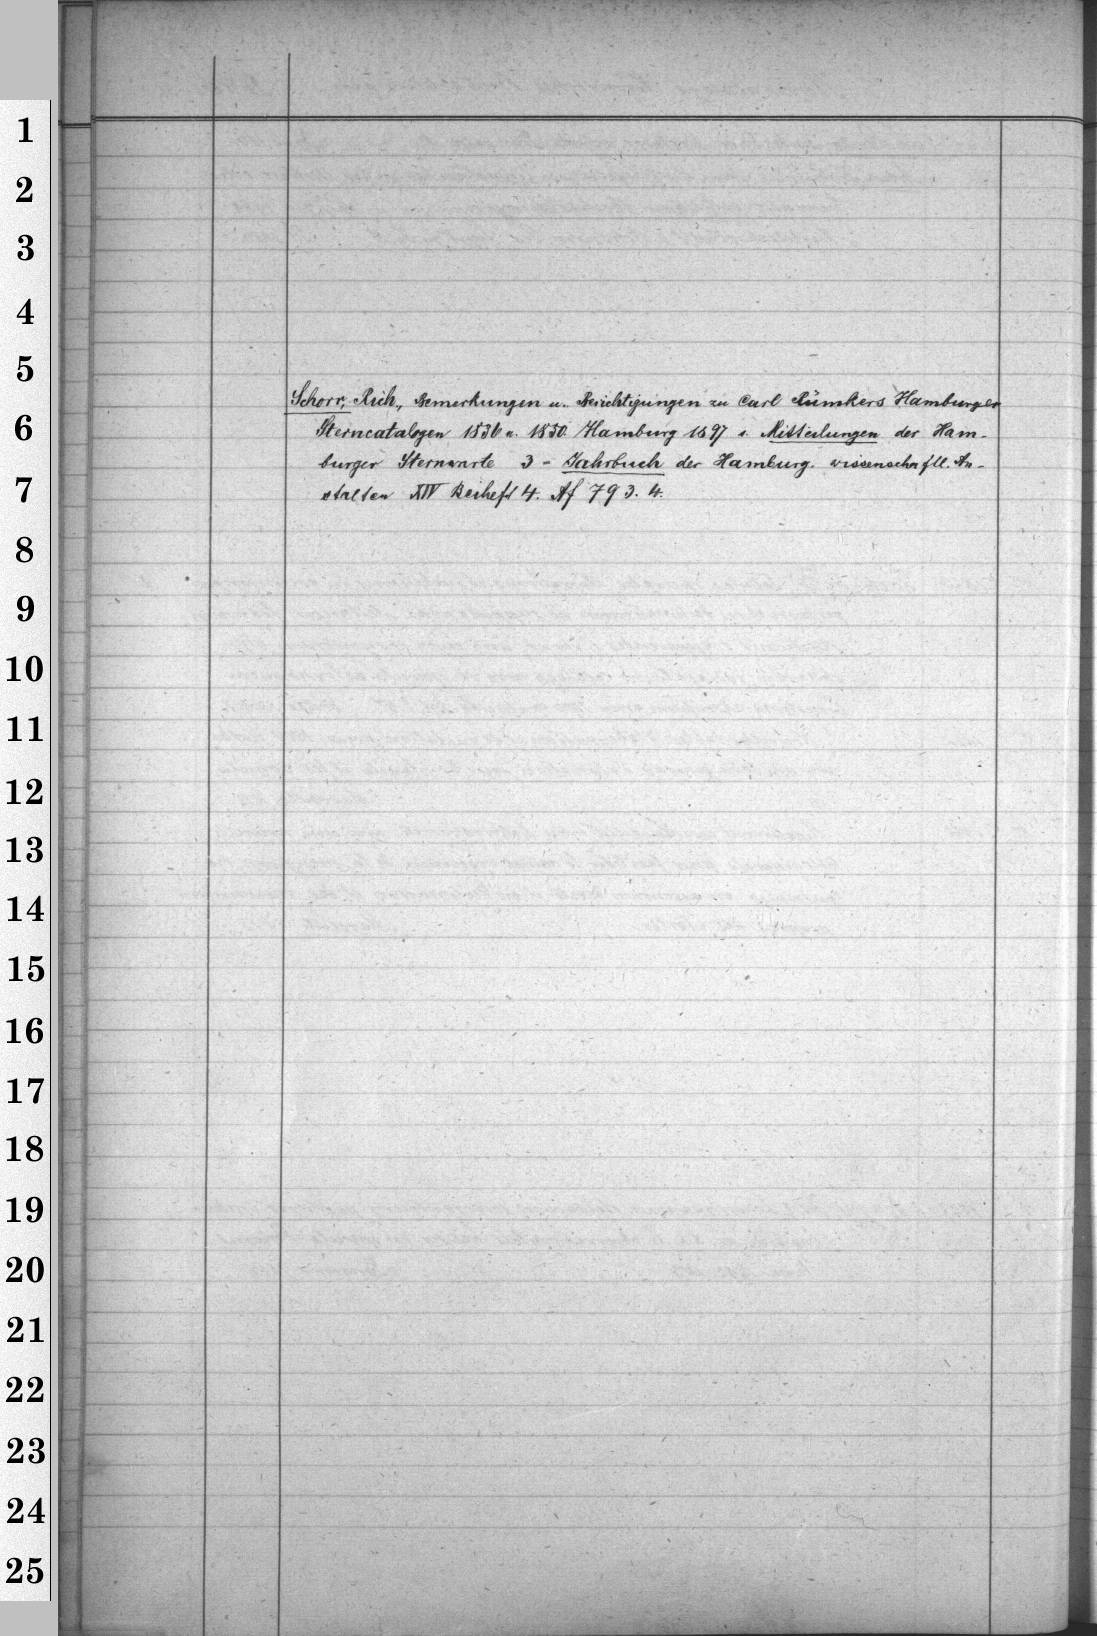 1
2
3
4
5
Schorr, Rich., Bemerkungen u. Berichtigungen zu Carl Rümkers Hamburger
6
Sterncatalogen 1836 u. 1850 Hamburg 1897 s. Mitteilungen der Ham-
burger Sternwarte 3 = Jahrbuch der Hamburg. wissenschaftl. An-
7
stalten XIV Beiheft 4. Af 793.4.
8
9
10
11
12
13
14
15
16
17
18
19
20
21
22
23
24
25